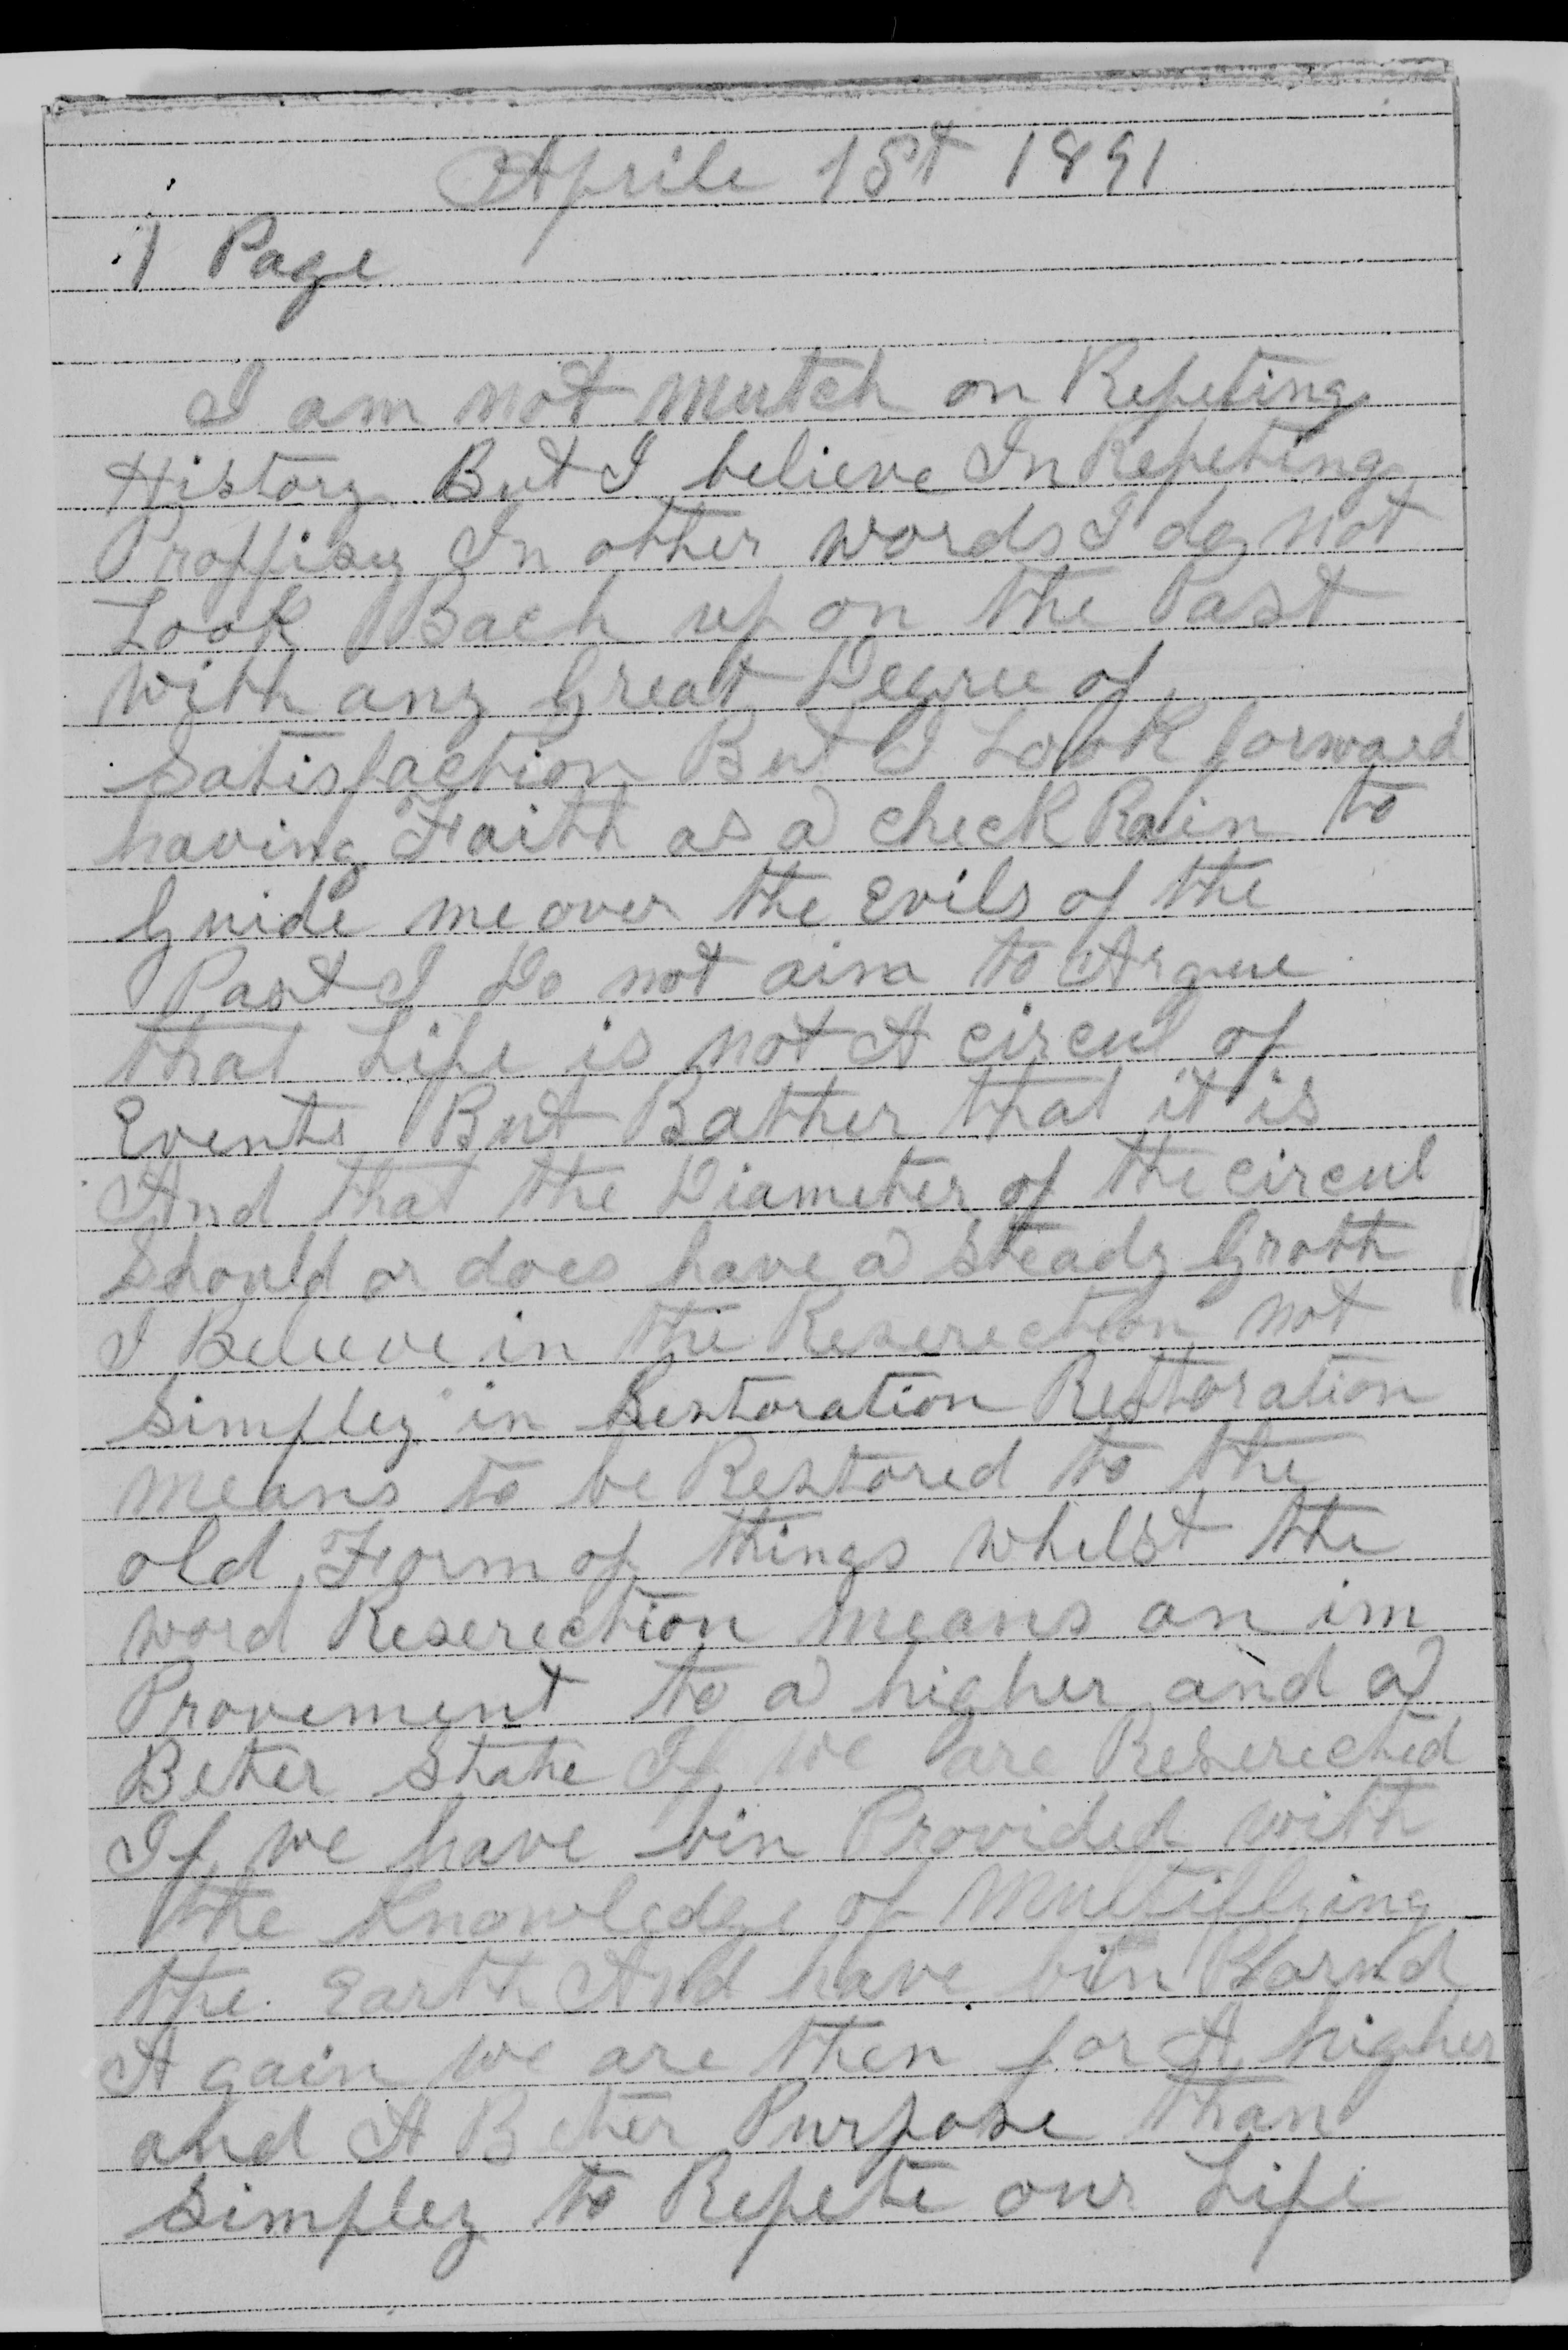 Aprile 1St 1891
1 Page
I am not Mutch on Repeting
History But I believe In Repeting
Proffisy In other words I do not
Look Back up on the Past
with any Great Degree of
Satisfaction But I Look forward
having Faith as a check Rain to
Guide me over the Evils of the
Past I Do not aim to Argue
that Life is not A circul of
Events But Rather that it is
And that the Diameter of the circul
Should or does have a Steady Groth
I Believe in the Reserection not
Simpley in Restoration Restoration
means to be Restored to the
old Form of things whilst the
word Reserection means an im
Provement to a higher and a
Beter State If we are Reserected
If we have bin Provided with
the Knowledge of Multiplying
the Earth And have bin Bornd
A gain we are then for A higher
and A Beter Purpose than
Simpley to Repete our Life